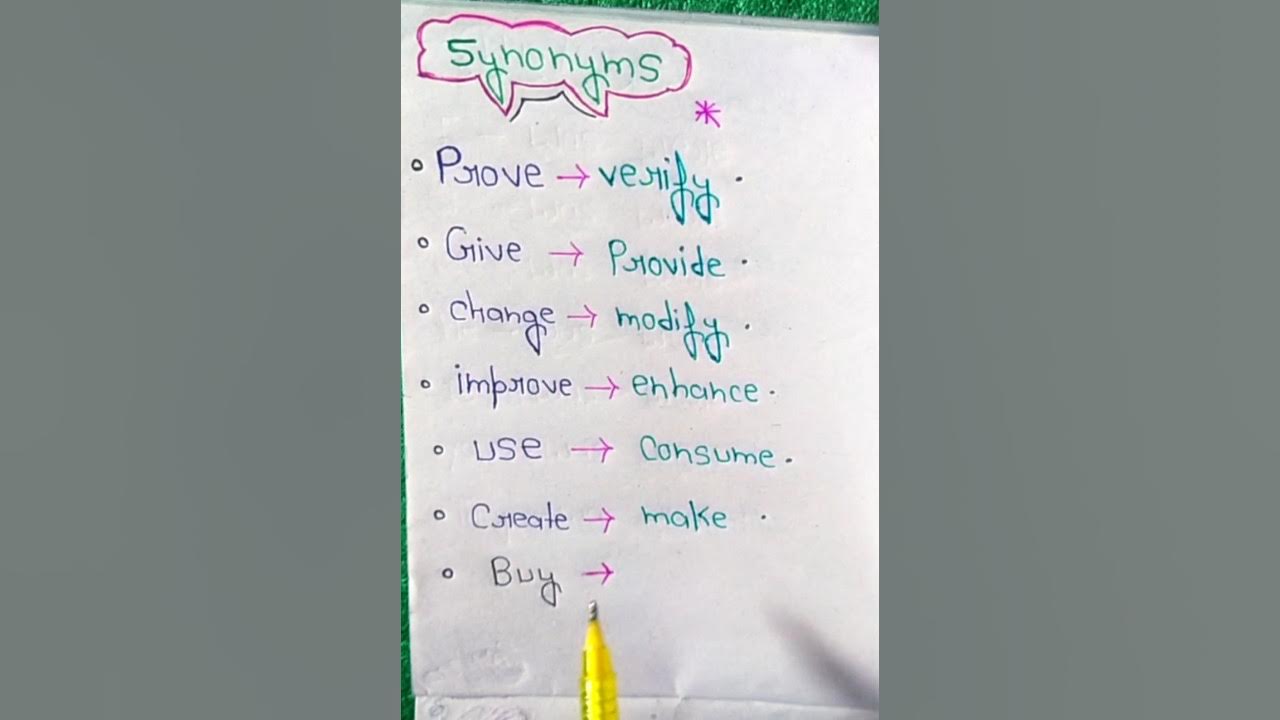 Synonyms
*
• Prove → verify .
• Give → Provide .
• change → modify .
• improve → enhance .
• use → Consume .
• Create → make .
• Buy →